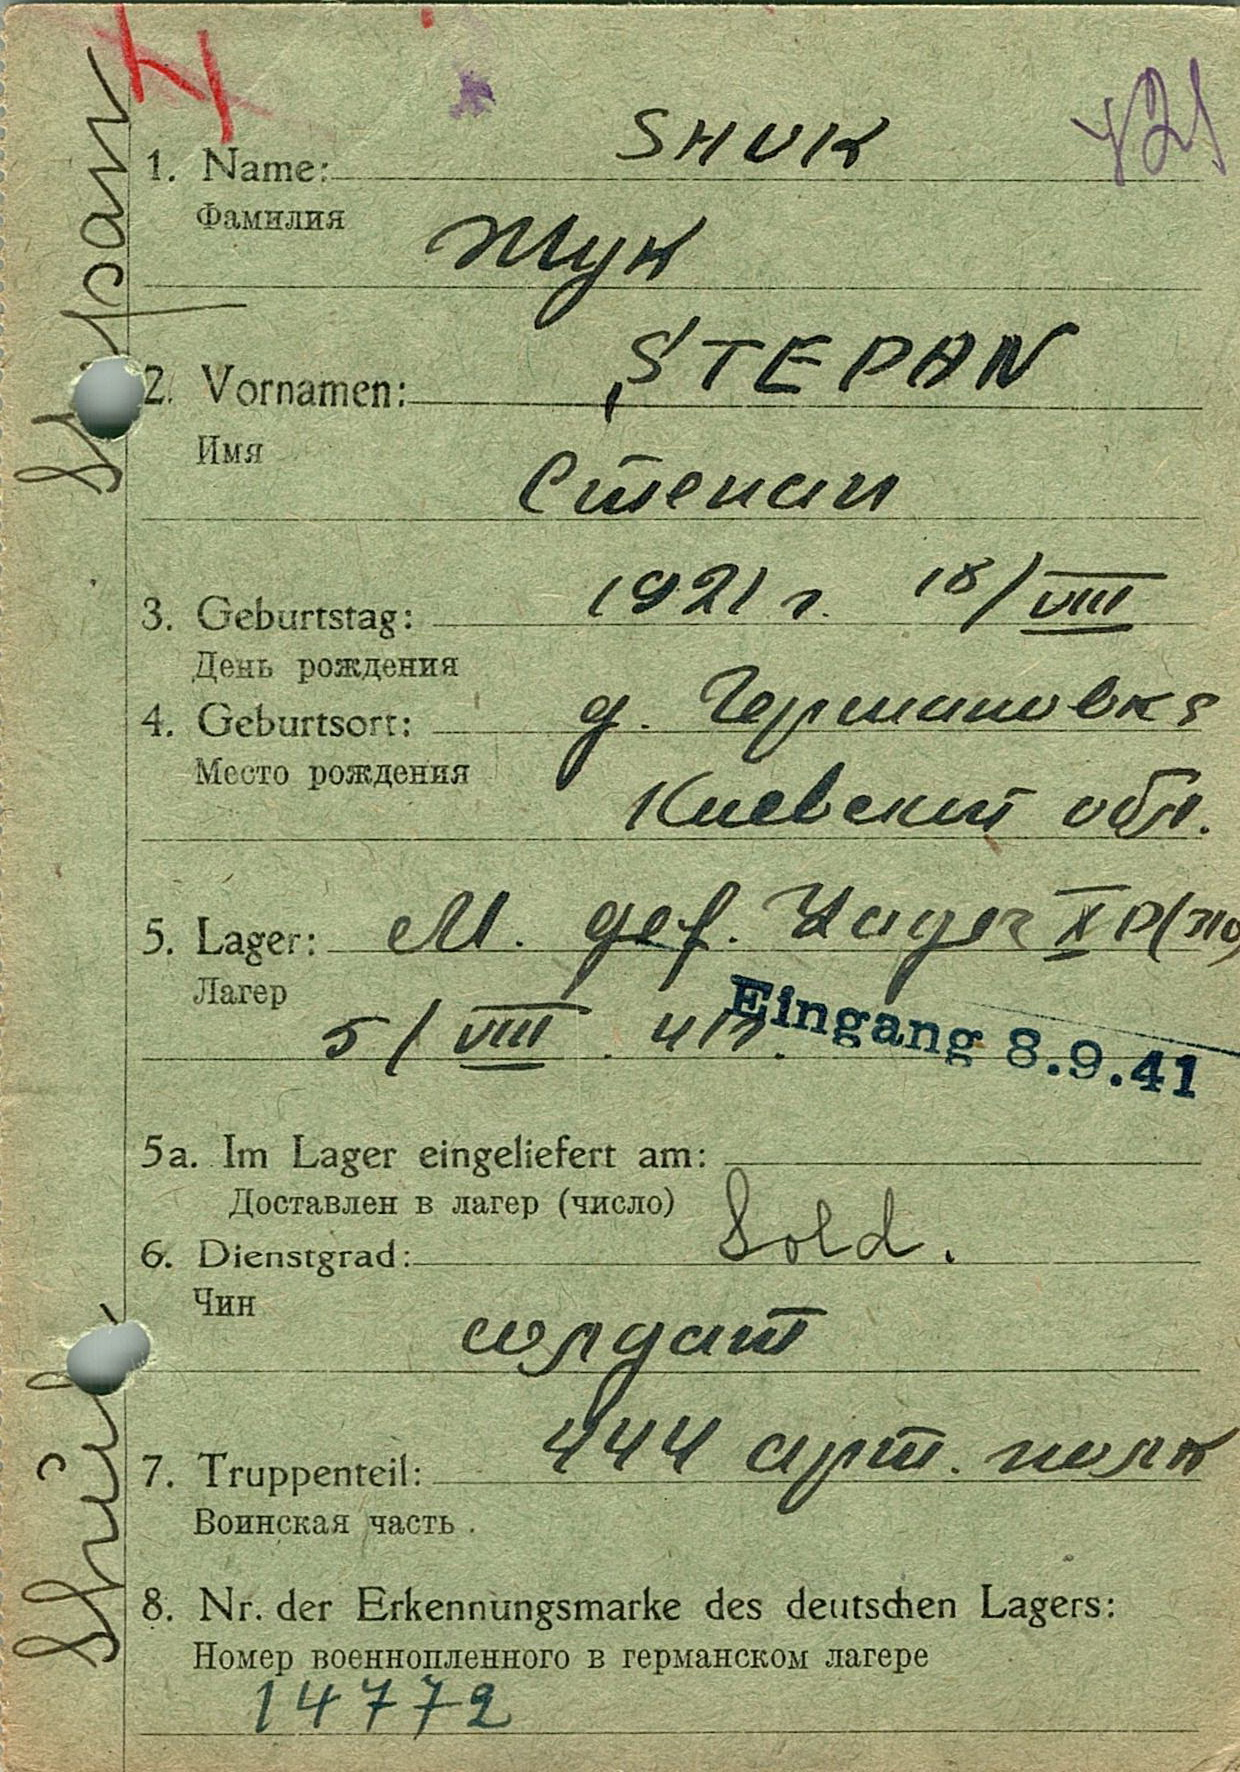 421
SHUK
1. Name:
Фамилия
Жук
STEPAN
2. Vornamen:
Имя
Степан
3. Geburtstag: 1921 г. 18/VIII
День рождения
4. Geburtsort: д. Германовка
Место рождения
Киевский обл.
5. Lager: M. gef. Lager X D (310)
Лагер
5/VIII. 41г.
Eingang 8.9.41
5a. Im Lager eingeliefert am:
Доставлен в лагер (число)
6. Dienstgrad: Sold.
Чин
солдат
7. Truppenteil: 444 арт. полк
Воинская часть.
8. Nr. der Erkennungsmarke des deutschen Lagers:
Номер военнопленного в германском лагере
14772
Shuk, Stepan